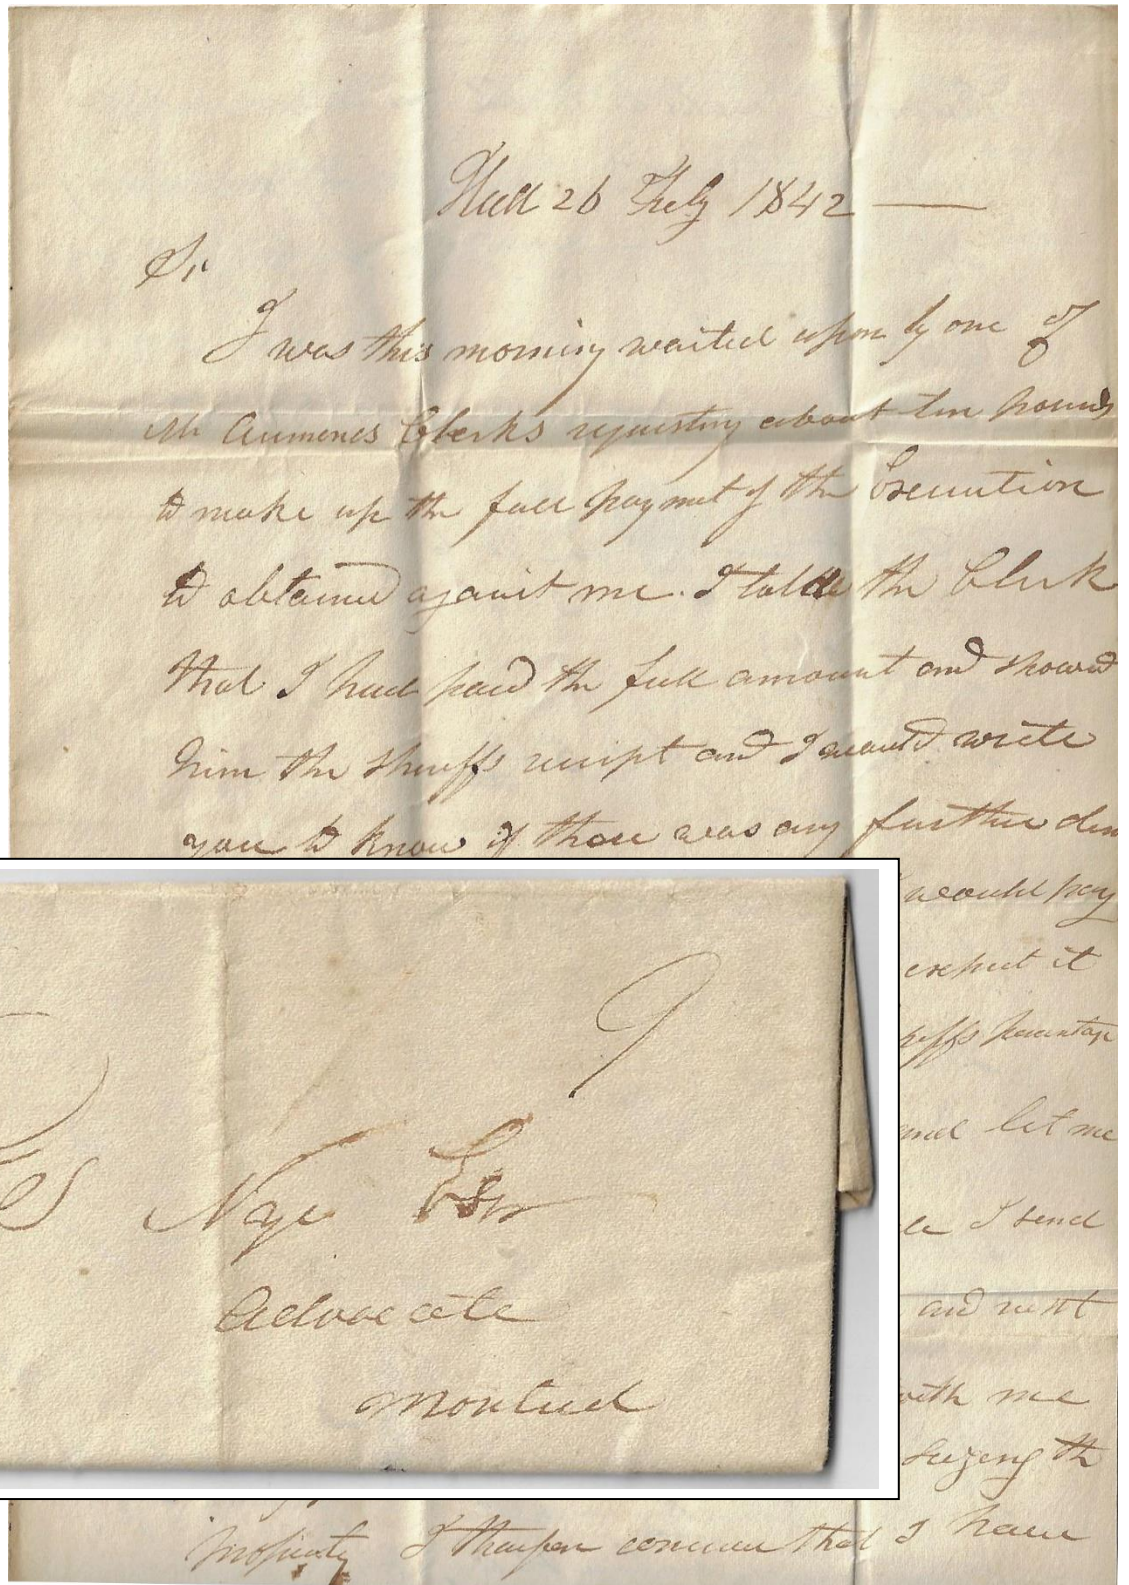 Hull 26 July 1842
Sir
I was this morning waited upon by one of
Mr Clerks requesting about ten pounds
to make up the full payment of the Execution
to obtained against me. I told the Clerk
that I had paid the full amount and showed
him the sheriffs receipt and I would write
you to know if thare was any further dem
would pay
expect it
and let me
I send
and rest
with me
seizeng th
property I conceive that I have
9
Nye Esqr
Advocate
Montreal